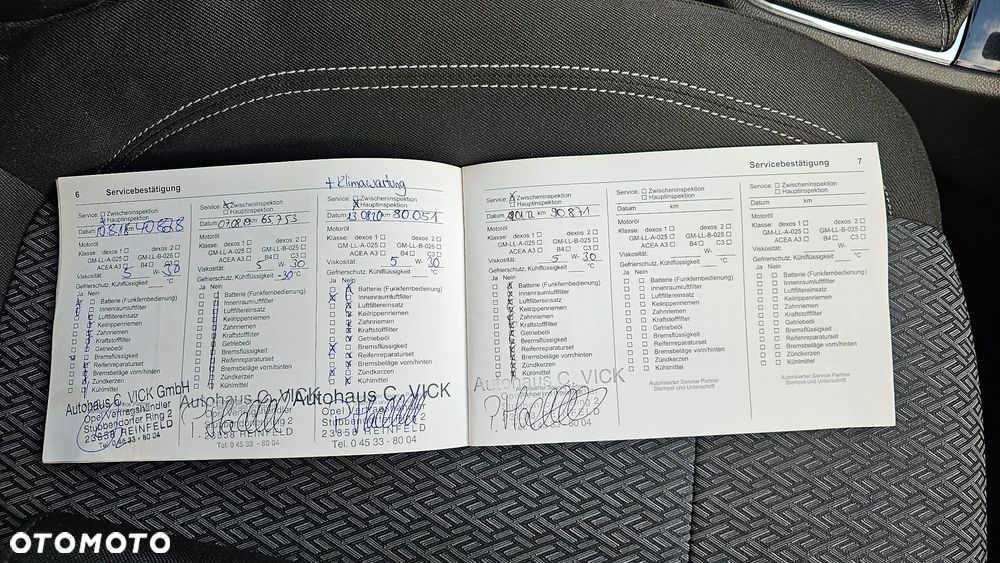 6 Servicebestätigung
+ Klimawartung
Service: Zwischeninspektion
X Hauptinspektion
Datum km
Motoröl
Klasse: dexos 1 dexos 2
GM-LL-A-025 GM-LL-B-025
ACEA A3 B4 C3
Viskosität: 5 W- 30
Gefrierschutz, Kühlflüssigkeit °C
Ja Nein
Batterie (Funkfernbedienung)
Innenraumluftfilter
Luftfiltereinsatz
Keilrippenriemen
Zahnriemen
Kraftstofffilter
Getriebeöl
Bremsflüssigkeit
Reifenreparaturset
Bremsbeläge vorn/hinten
Zündkerzen
Kühlmittel
Autohaus C. VICK GmbH
Opel Vertragshändler
Stubbendorfer Ring 2
23858 REINFELD
Tel. 0 45 33 - 80 04
Service: X Zwischeninspektion
Hauptinspektion
Datum 07.08.19 km 65 753
Motoröl
Klasse: dexos 1 dexos 2
GM-LL-A-025 GM-LL-B-025
ACEA A3 B4 C3
Viskosität: 5 W- 30
Gefrierschutz, Kühlflüssigkeit -30 °C
Ja Nein
Batterie (Funkfernbedienung)
Innenraumluftfilter
Luftfiltereinsatz
Keilrippenriemen
Zahnriemen
Kraftstofffilter
Getriebeöl
Bremsflüssigkeit
Reifenreparaturset
Bremsbeläge vorn/hinten
Zündkerzen
Kühlmittel
Autohaus C. VICK
23858 REINFELD
Tel. 0 45 33 - 80 04
Service: Zwischeninspektion
X Hauptinspektion
Datum 13.08.20 km 80 051
Motoröl
Klasse: dexos 1 dexos 2
GM-LL-A-025 GM-LL-B-025
ACEA A3 B4 C3
Viskosität: 5 W- 30
Gefrierschutz, Kühlflüssigkeit °C
Ja Nein
Batterie (Funkfernbedienung)
Innenraumluftfilter
Luftfiltereinsatz
Keilrippenriemen
Zahnriemen
Kraftstofffilter
Getriebeöl
Bremsflüssigkeit
Reifenreparaturset
Bremsbeläge vorn/hinten
Zündkerzen
Kühlmittel
Autohaus C. VICK
Opel Vertragshändler
23858 REINFELD
Tel. 0 45 33 - 80 04
Servicebestätigung 7
Service: X Zwischeninspektion
Hauptinspektion
Datum km 90.871
Motoröl
Klasse: dexos 1 dexos 2
GM-LL-A-025 GM-LL-B-025
ACEA A3 B4 C3
Viskosität: 5 W- 30
Gefrierschutz, Kühlflüssigkeit °C
Ja Nein
Batterie (Funkfernbedienung)
Innenraumluftfilter
Luftfiltereinsatz
Keilrippenriemen
Zahnriemen
Kraftstofffilter
Getriebeöl
Bremsflüssigkeit
Reifenreparaturset
Bremsbeläge vorn/hinten
Zündkerzen
Kühlmittel
Autohaus C. VICK
Service: Zwischeninspektion
Hauptinspektion
Datum km
Motoröl
Klasse: dexos 1 dexos 2
GM-LL-A-025 GM-LL-B-025
ACEA A3 B4 C3
Viskosität: W-
Gefrierschutz, Kühlflüssigkeit °C
Ja Nein
Batterie (Funkfernbedienung)
Innenraumluftfilter
Luftfiltereinsatz
Keilrippenriemen
Zahnriemen
Kraftstofffilter
Getriebeöl
Bremsflüssigkeit
Reifenreparaturset
Bremsbeläge vorn/hinten
Zündkerzen
Kühlmittel
Autorisierter Service Partner
Stempel und Unterschrift
Service: Zwischeninspektion
Hauptinspektion
Datum km
Motoröl
Klasse: dexos 1 dexos 2
GM-LL-A-025 GM-LL-B-025
ACEA A3 B4 C3
Viskosität: W-
Gefrierschutz, Kühlflüssigkeit °C
Ja Nein
Batterie (Funkfernbedienung)
Innenraumluftfilter
Luftfiltereinsatz
Keilrippenriemen
Zahnriemen
Kraftstofffilter
Getriebeöl
Bremsflüssigkeit
Reifenreparaturset
Bremsbeläge vorn/hinten
Zündkerzen
Kühlmittel
Autorisierter Service Partner
Stempel und Unterschrift
OTOMOTO